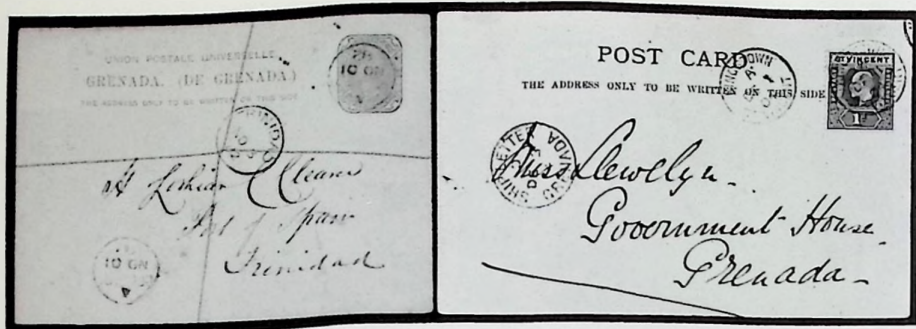 UNION POSTALE UNIVERSELLE.
GRENADA. (DE GRENADA.)
THE ADDRESS ONLY TO BE WRITTEN ON THIS SIDE
TRINIDAD
Port of Spain
Trinidad
POST CARD
THE ADDRESS ONLY TO BE WRITTEN ON THIS SIDE
ST VINCENT
1d
SHIP LETTER
GRENADA
Miss Llewelyn
Government House
Grenada